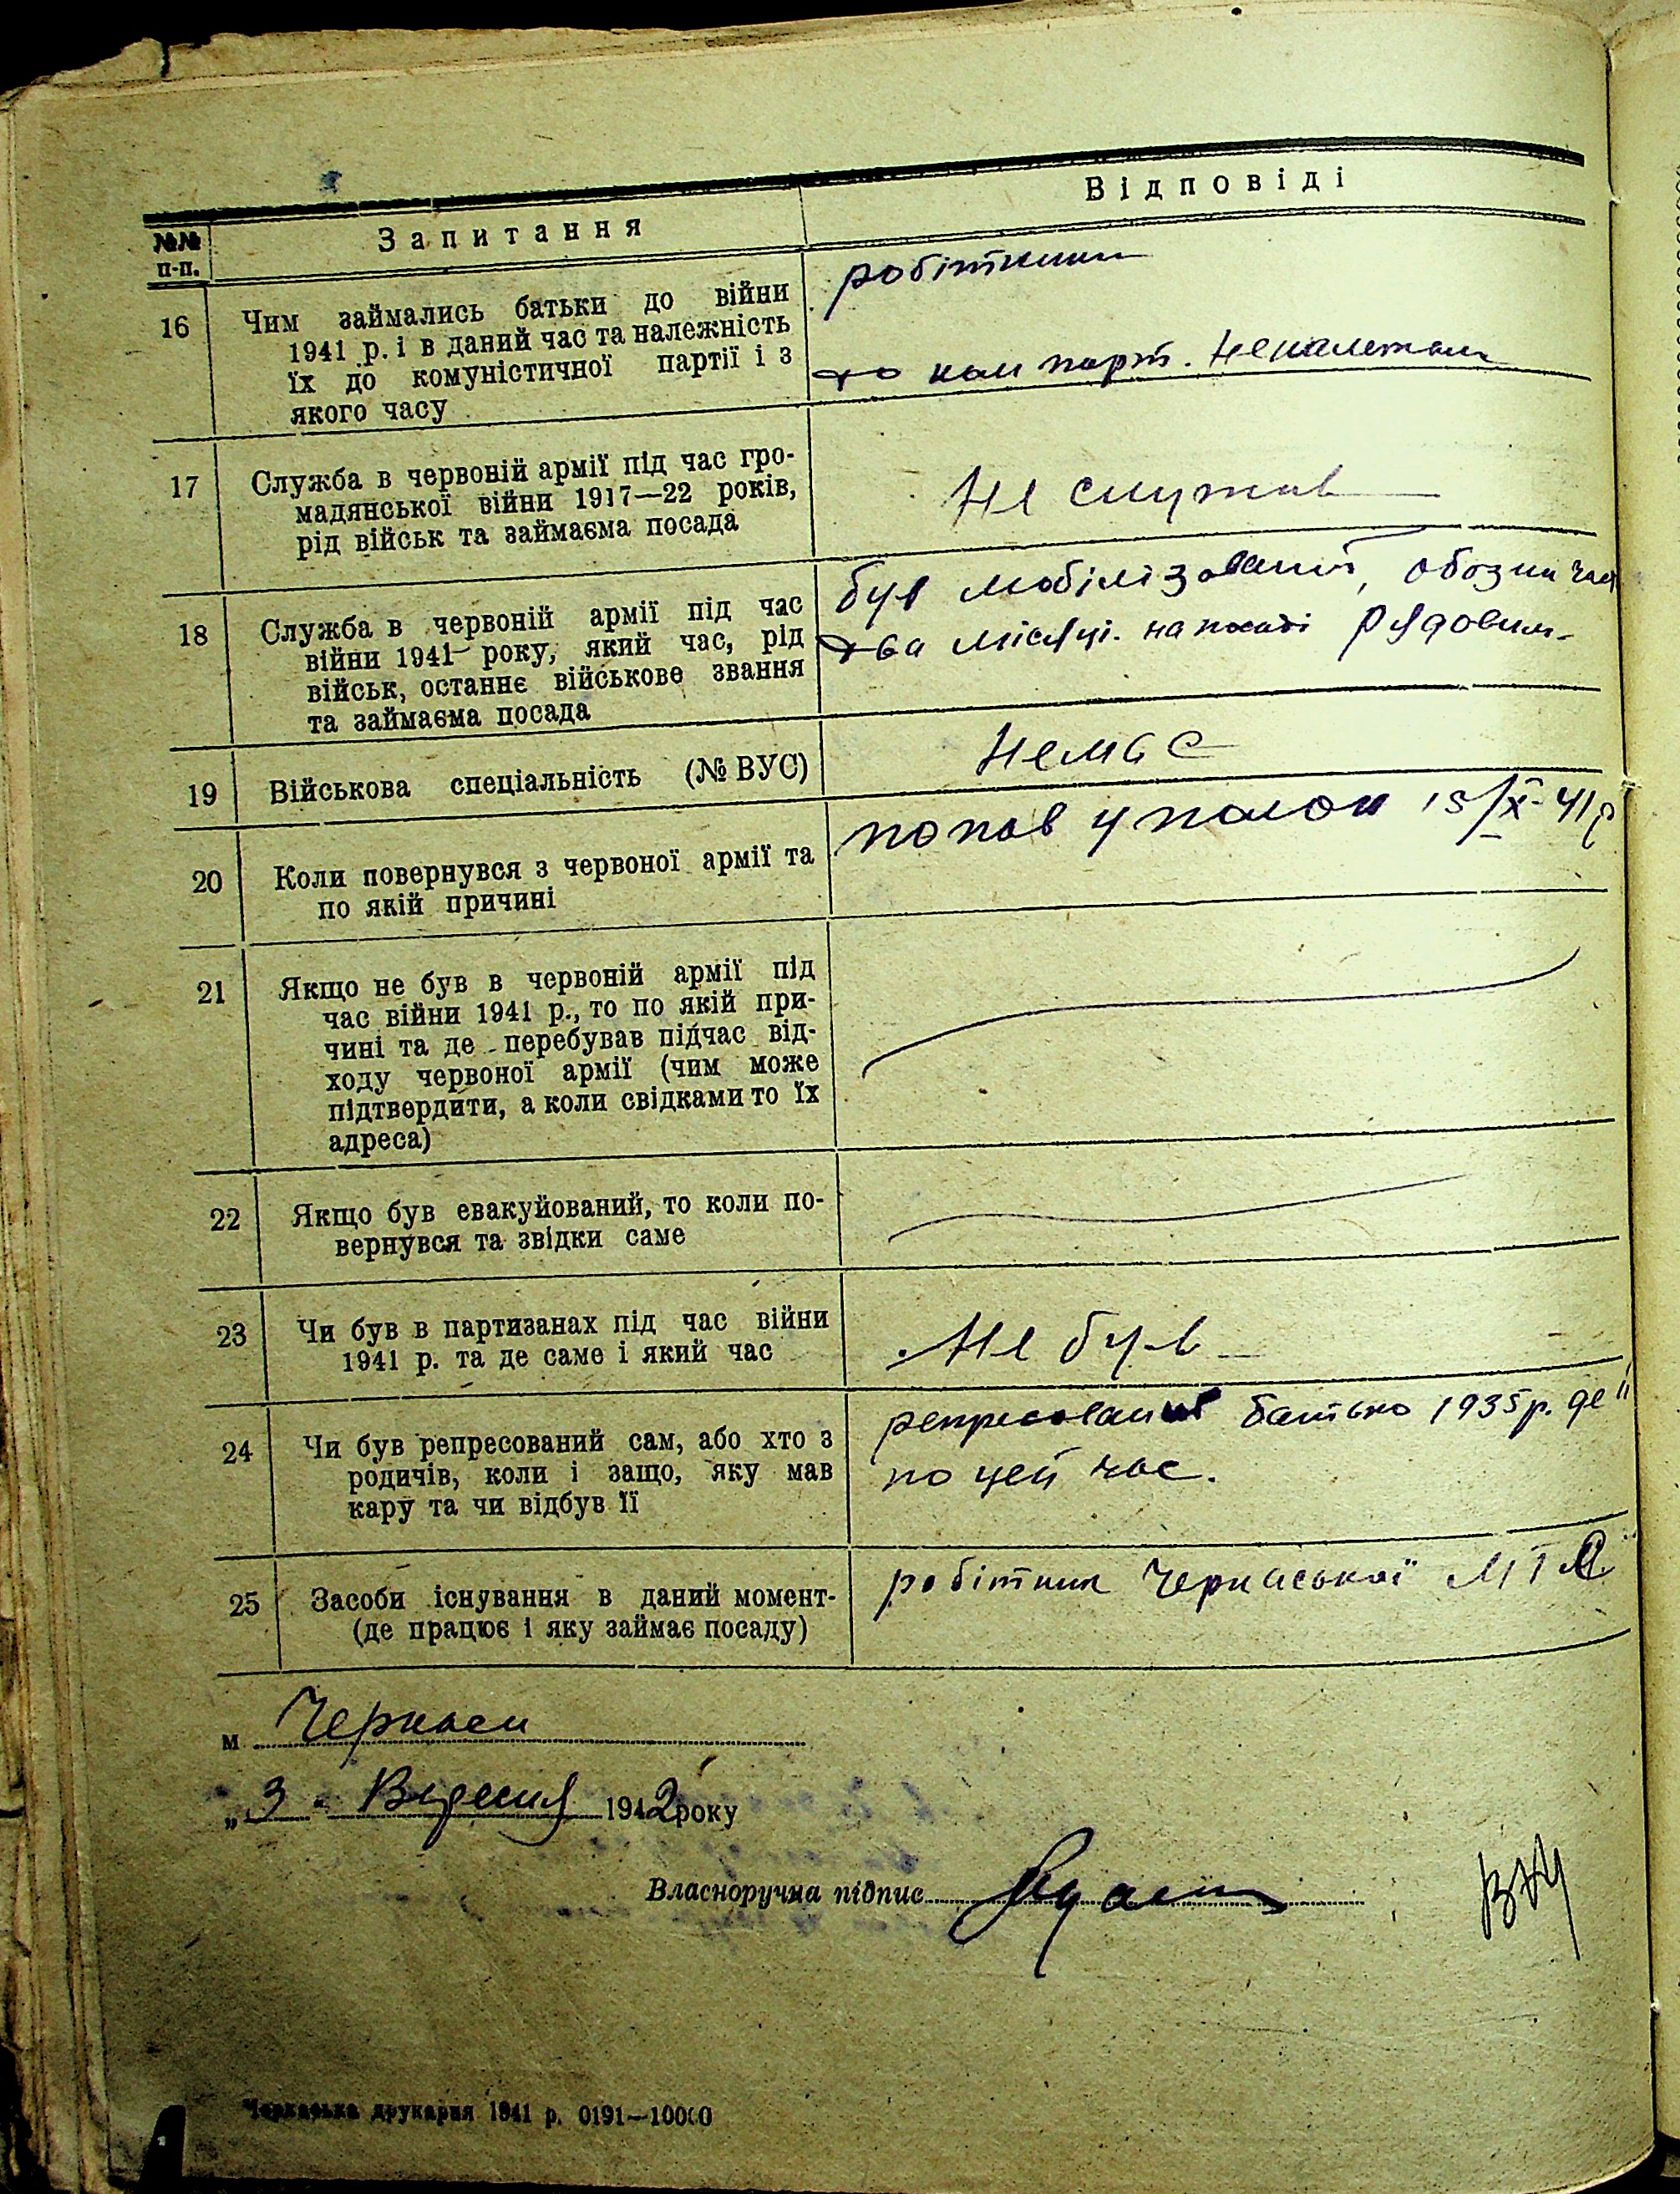 №№ п-п.
Запитання
Відповіді
16
Чим займались батьки до війни
1941 р. і в даний час та належність
їх до комуністичної партії і з
якого часу
робітники
до ком парт. Неналежали
17
Служба в червоній армії під час гро-
мадянської війни 1917—22 років,
рід військ та займаєма посада
Не служив
18
Служба в червоній армії під час
війни 1941 року, який час, рід
військ, останнє військове звання
та займаєма посада
був мобілізований, обозна час
два місяці. на посаді рядовим
19
Військова спеціальність (№ ВУС)
Немає
20
Коли повернувся з червоної армії та
по якій причині
попав у полон 15/X-41р
21
Якщо не був в червоній армії під
час війни 1941 р., то по якій при-
чині та де перебував підчас від-
ходу червоної армії (чим може
підтвердити, а коли свідками то їх
адреса)
22
Якщо був евакуйований, то коли по-
вернувся та звідки саме
23
Чи був в партизанах під час війни
1941 р. та де саме і який час
Не був
24
Чи був репресований сам, або хто з
родичів, коли і защо, яку мав
кару та чи відбув її
репресований батько 1935р. де
по цей час.
25
Засоби існування в даний момент-
(де працює і яку займає посаду)
робітник Черкаської МТС
м Черкаси
„3" Вересня 1942 року
Власноручна підпис
Черкаська друкарня 1941 р. 0191—10000